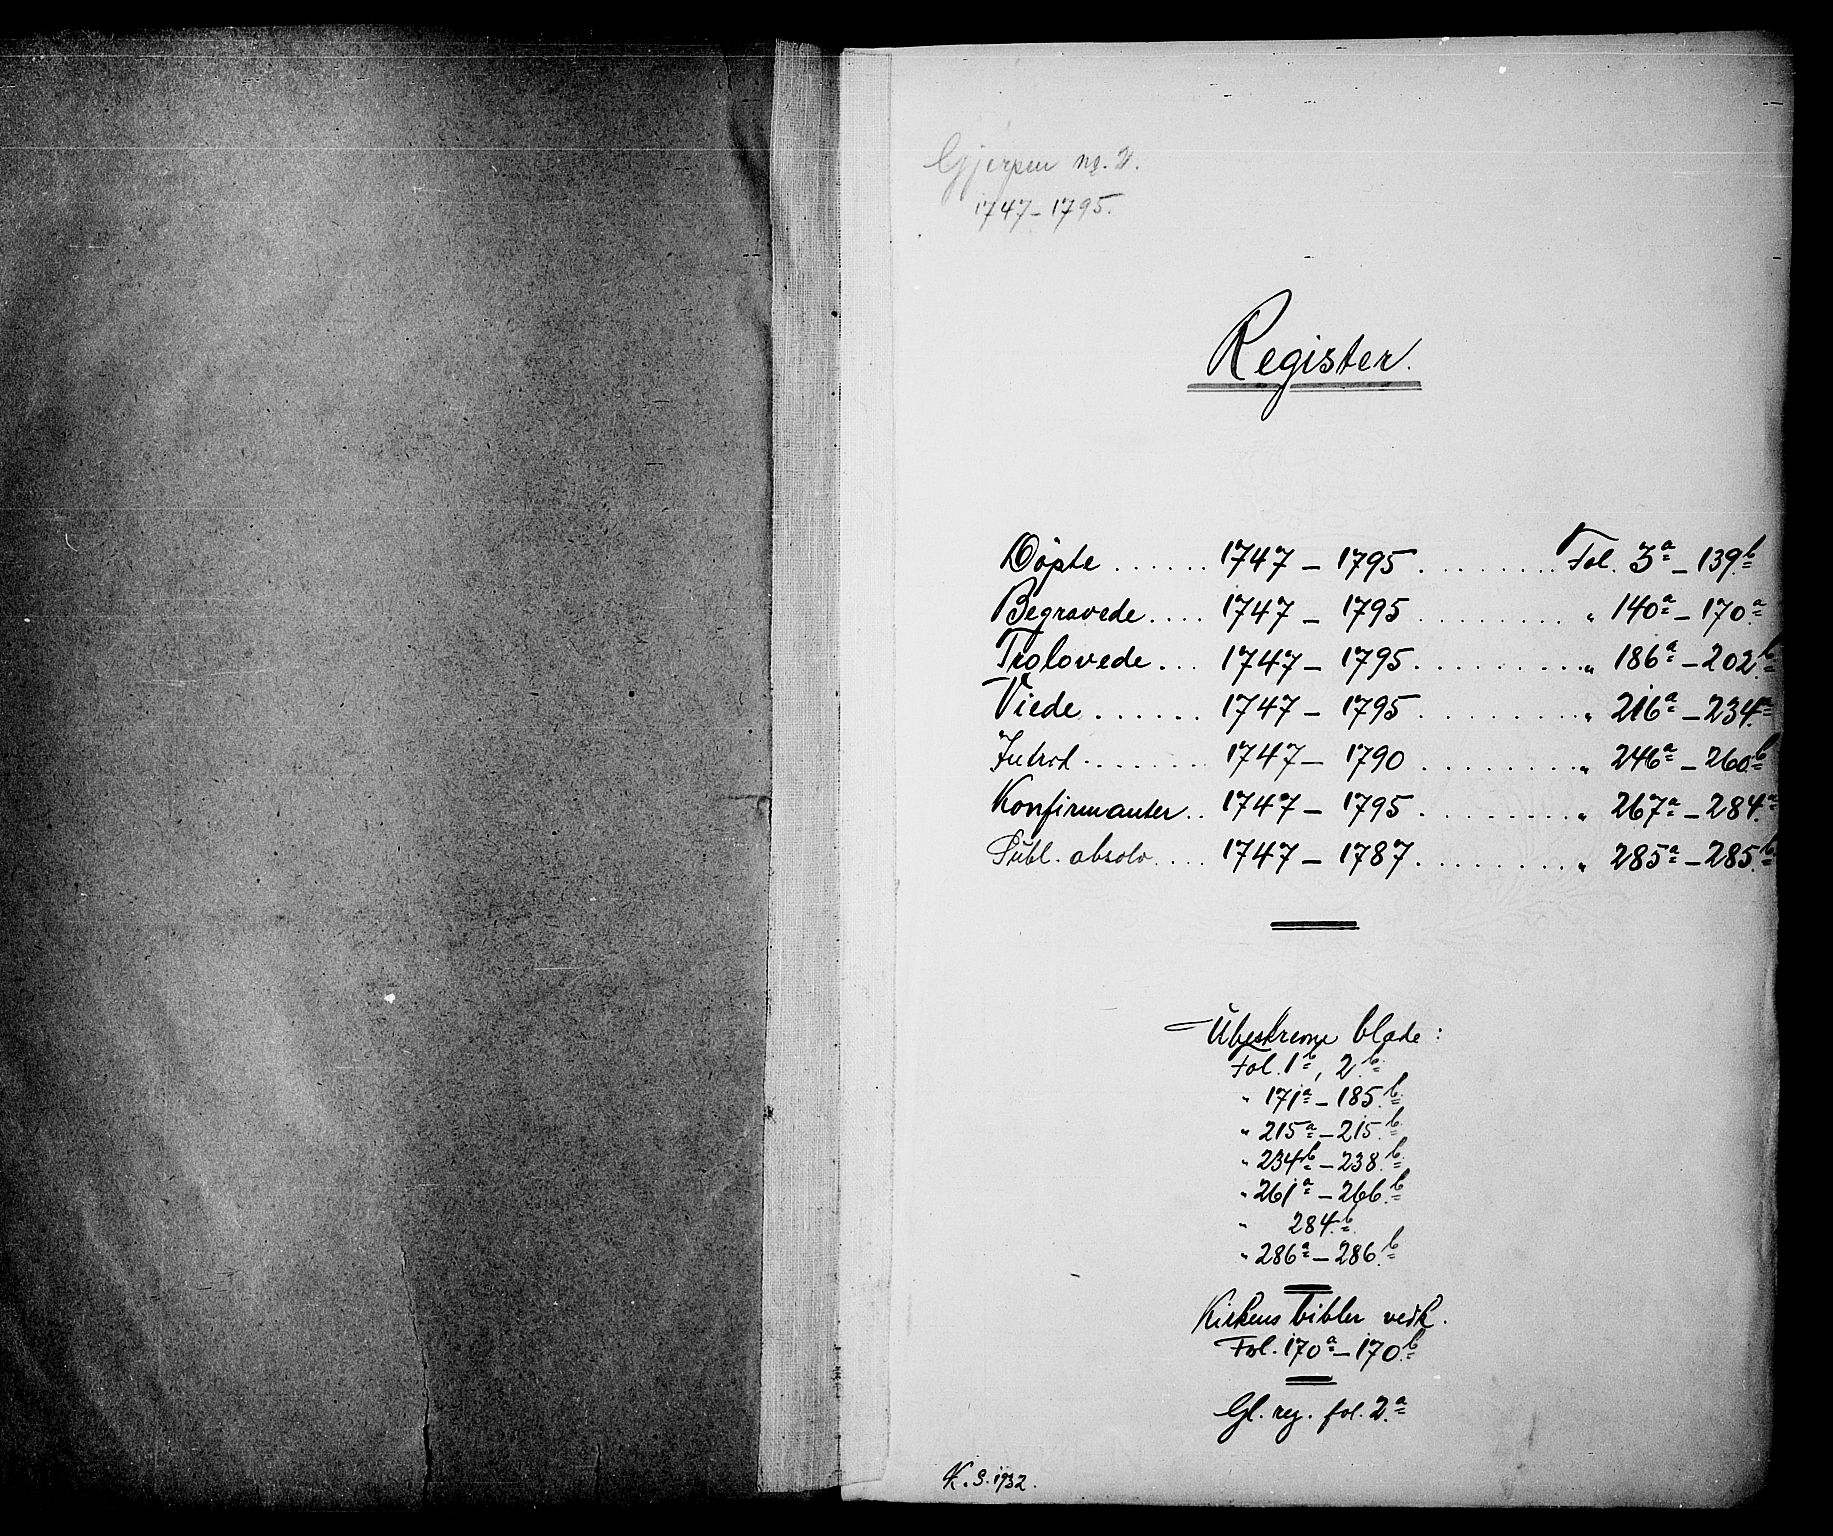 Gjerpen nr. 2.
1747-1795.
Register.
Døpte ...... 1747 - 1795 ........ Fol. 3a - 139b
Begravede.... 1747 - 1795 ......... " 140a - 170a
Trolovede ... 1747 - 1795 ......... " 186a - 202b
Viede ...... 1747 - 1795 ......... " 216a - 234a
Introd. ....... 1747 - 1790 ......... " 246a - 260b
Konfirmanter.. 1747 - 1795 ......... " 267a - 284a
Publ. absolv. ... 1747 - 1787 ......... " 285a - 285b
Ubeskrevne blade:
Fol. 1b, 2b
" 171a - 185b
" 215a - 215b
" 234b - 238b
" 261a - 266b
" 284b
" 286a - 286b
Kirkens bibler vedk.
Fol. 170a - 170b
Gl. reg. fol. 2a
K. S. 1932.